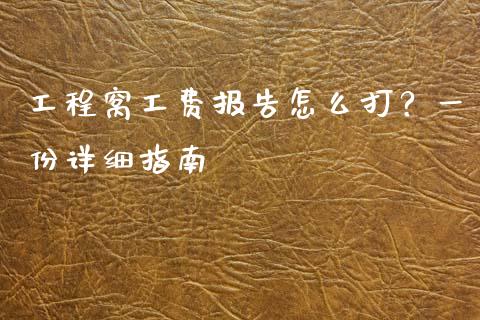 工程窝工费报告怎么打？一
份详细指南